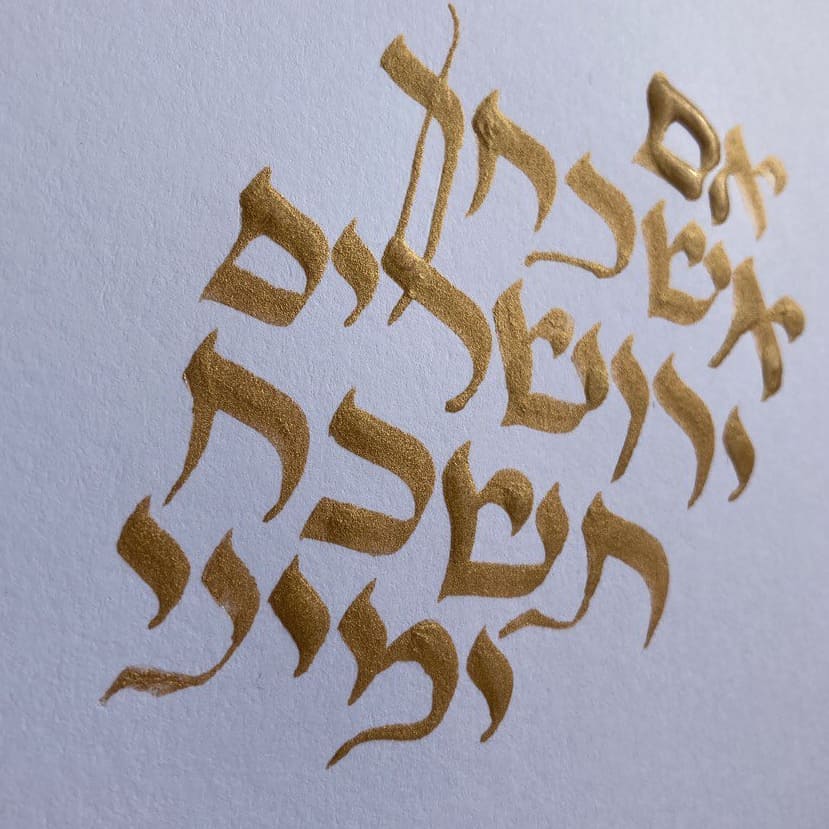 אם
אשכחך
ירושלים
תשכח
ימיני